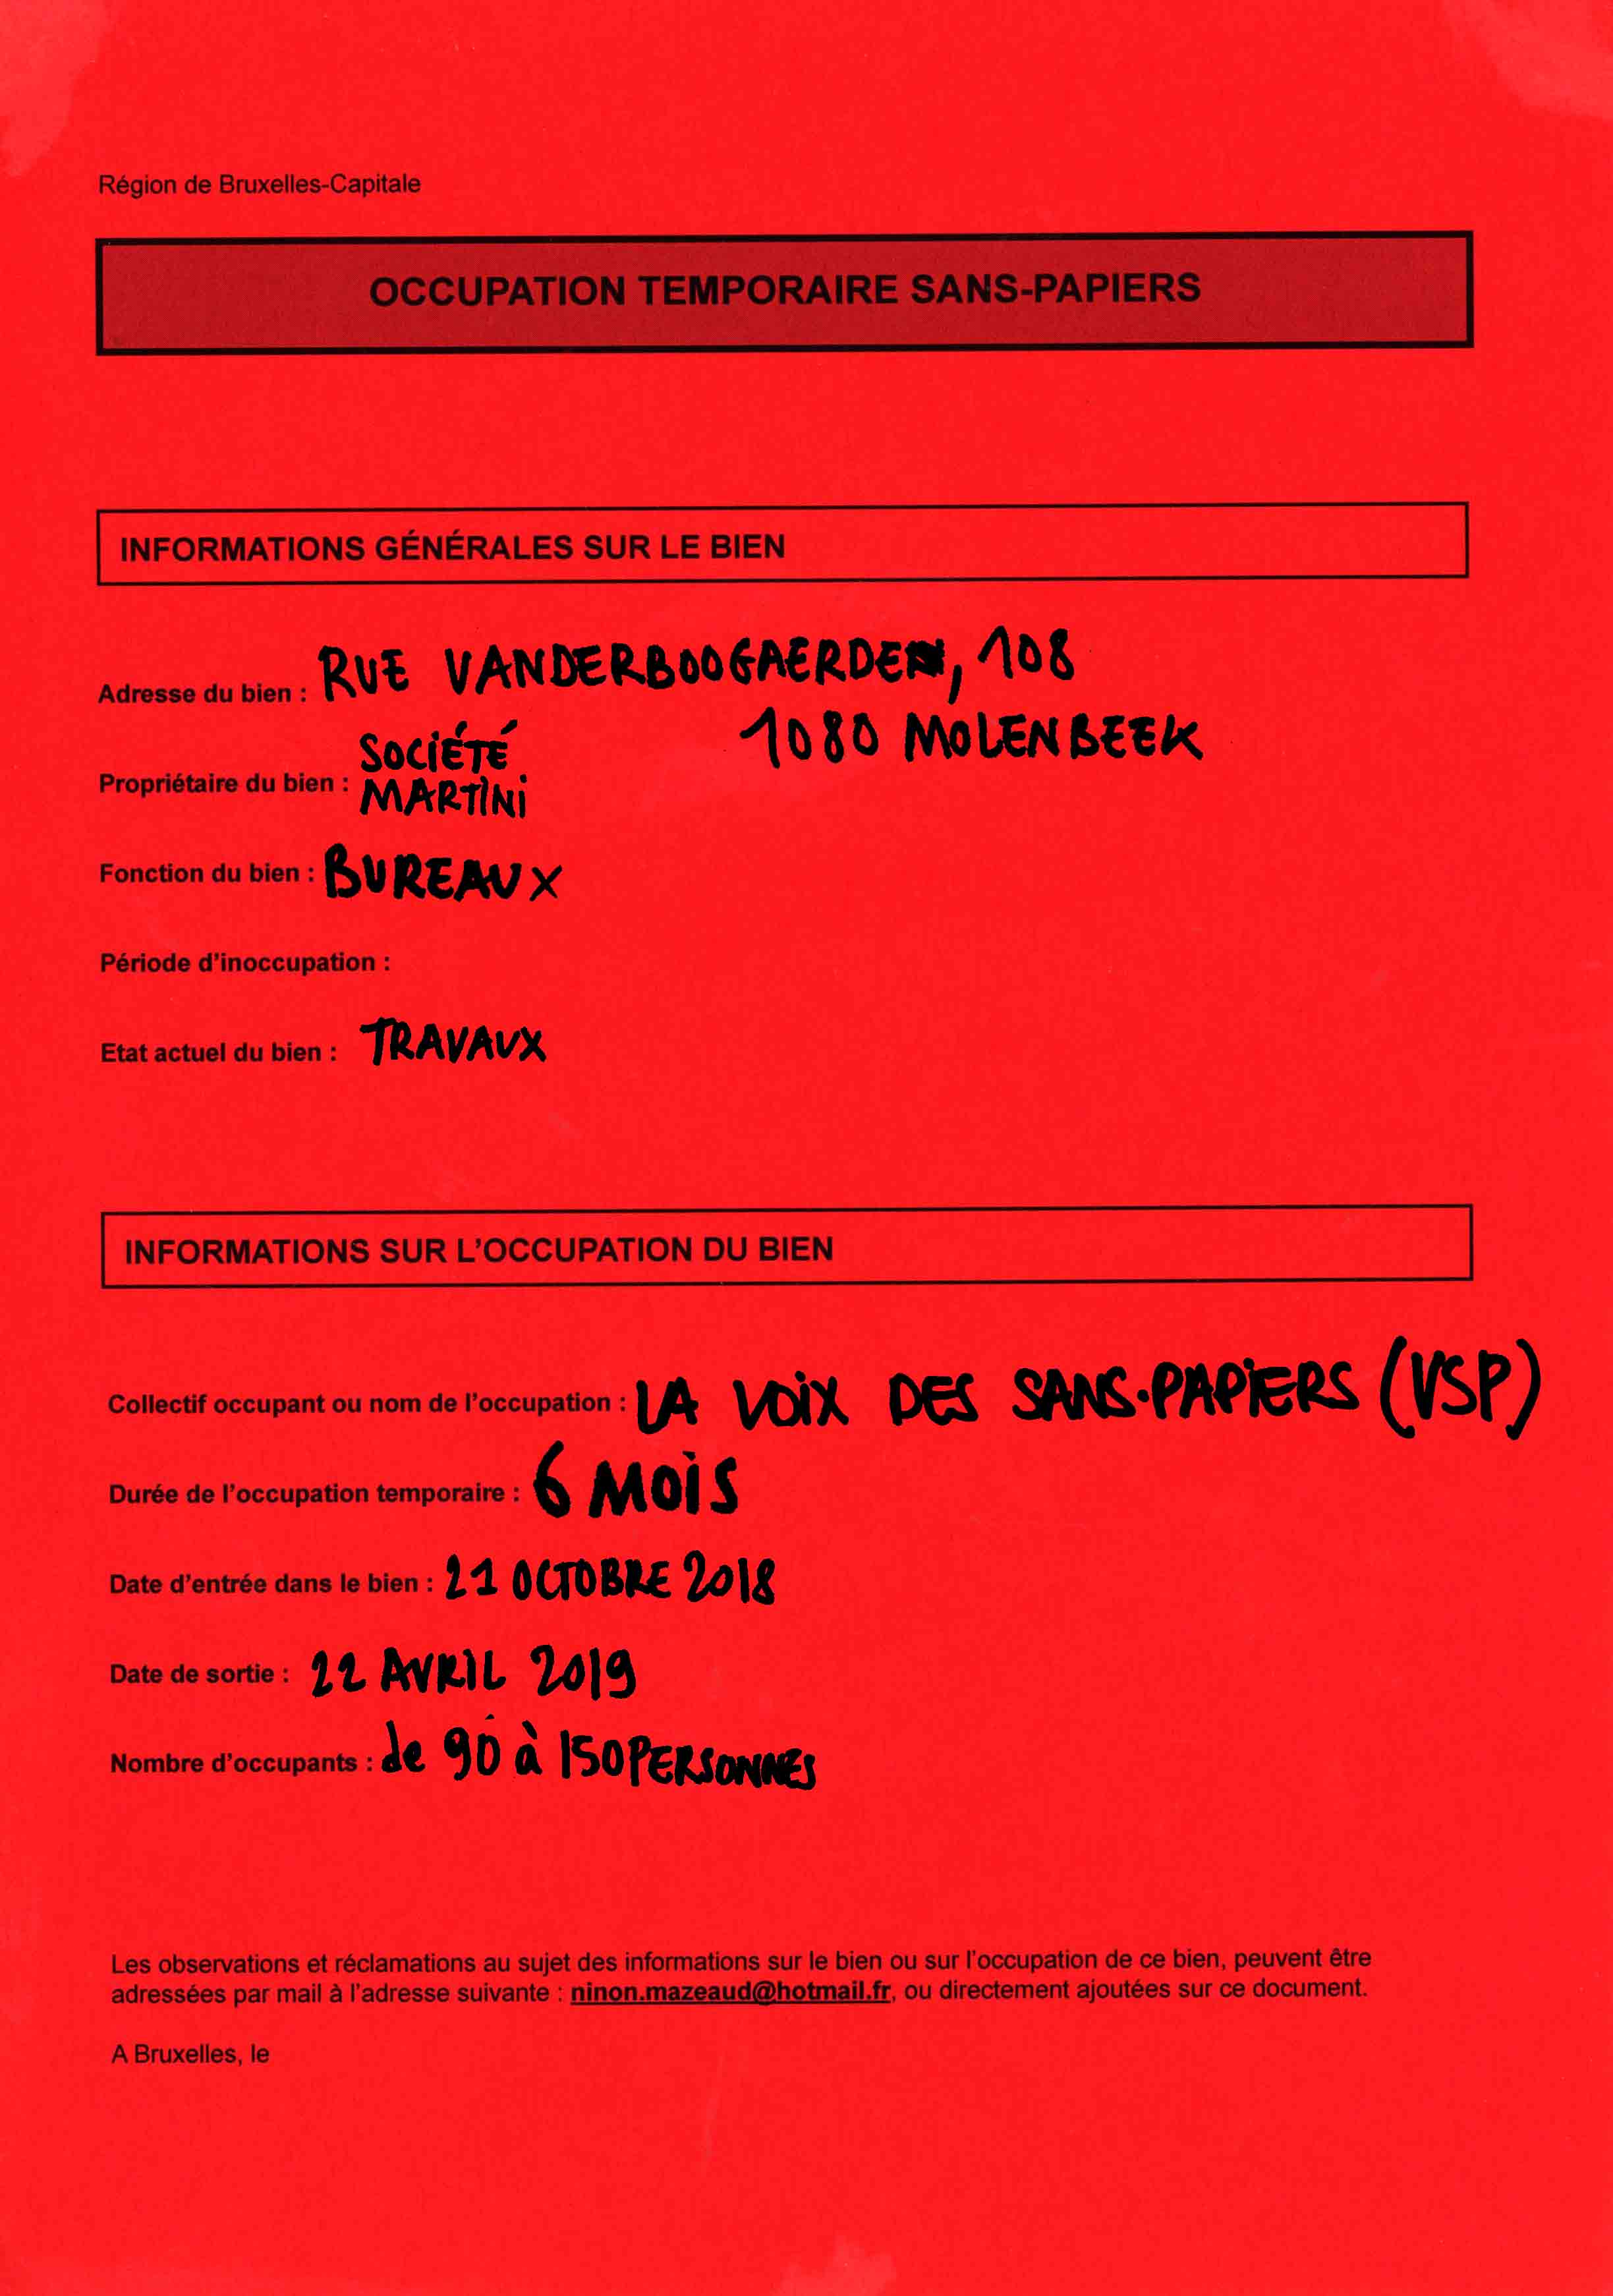 Région de Bruxelles-Capitale
OCCUPATION TEMPORAIRE SANS-PAPIERS
INFORMATIONS GÉNÉRALES SUR LE BIEN
Adresse du bien : RUE VANDERBOOGAERDEN, 108
1080 MOLENBEEK
Propriétaire du bien : SOCIÉTÉ
MARTINI
Fonction du bien : BUREAUX
Période d'inoccupation :
Etat actuel du bien : TRAVAUX
INFORMATIONS SUR L'OCCUPATION DU BIEN
Collectif occupant ou nom de l'occupation : LA VOIX DES SANS-PAPIERS (VSP)
Durée de l'occupation temporaire : 6 MOIS
Date d'entrée dans le bien : 21 OCTOBRE 2018
Date de sortie : 22 AVRIL 2019
Nombre d'occupants : de 90 à 150 PERSONNES
Les observations et réclamations au sujet des informations sur le bien ou sur l'occupation de ce bien, peuvent être
adressées par mail à l'adresse suivante : ninon.mazeaud@hotmail.fr, ou directement ajoutées sur ce document.
A Bruxelles, le